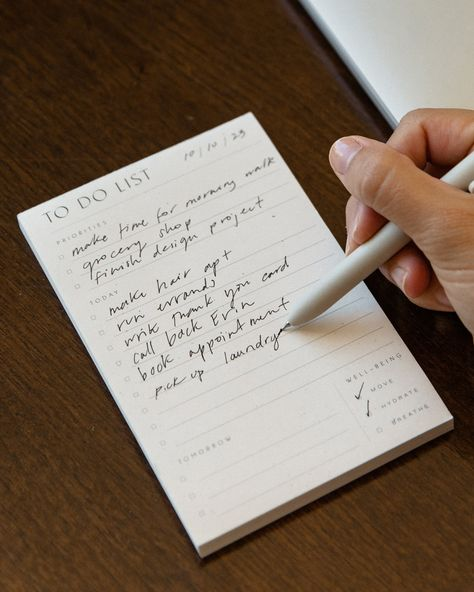 10/10/23
TO DO LIST
PRIORITIES
make time for morning walk
grocery shop
finish design project.
TODAY
make hair apt
run errands
write thank you card
call back Erin
book appointment
pick up laundry
WELL-BEING
MOVE
HYDRATE
BREATHE
TOMORROW